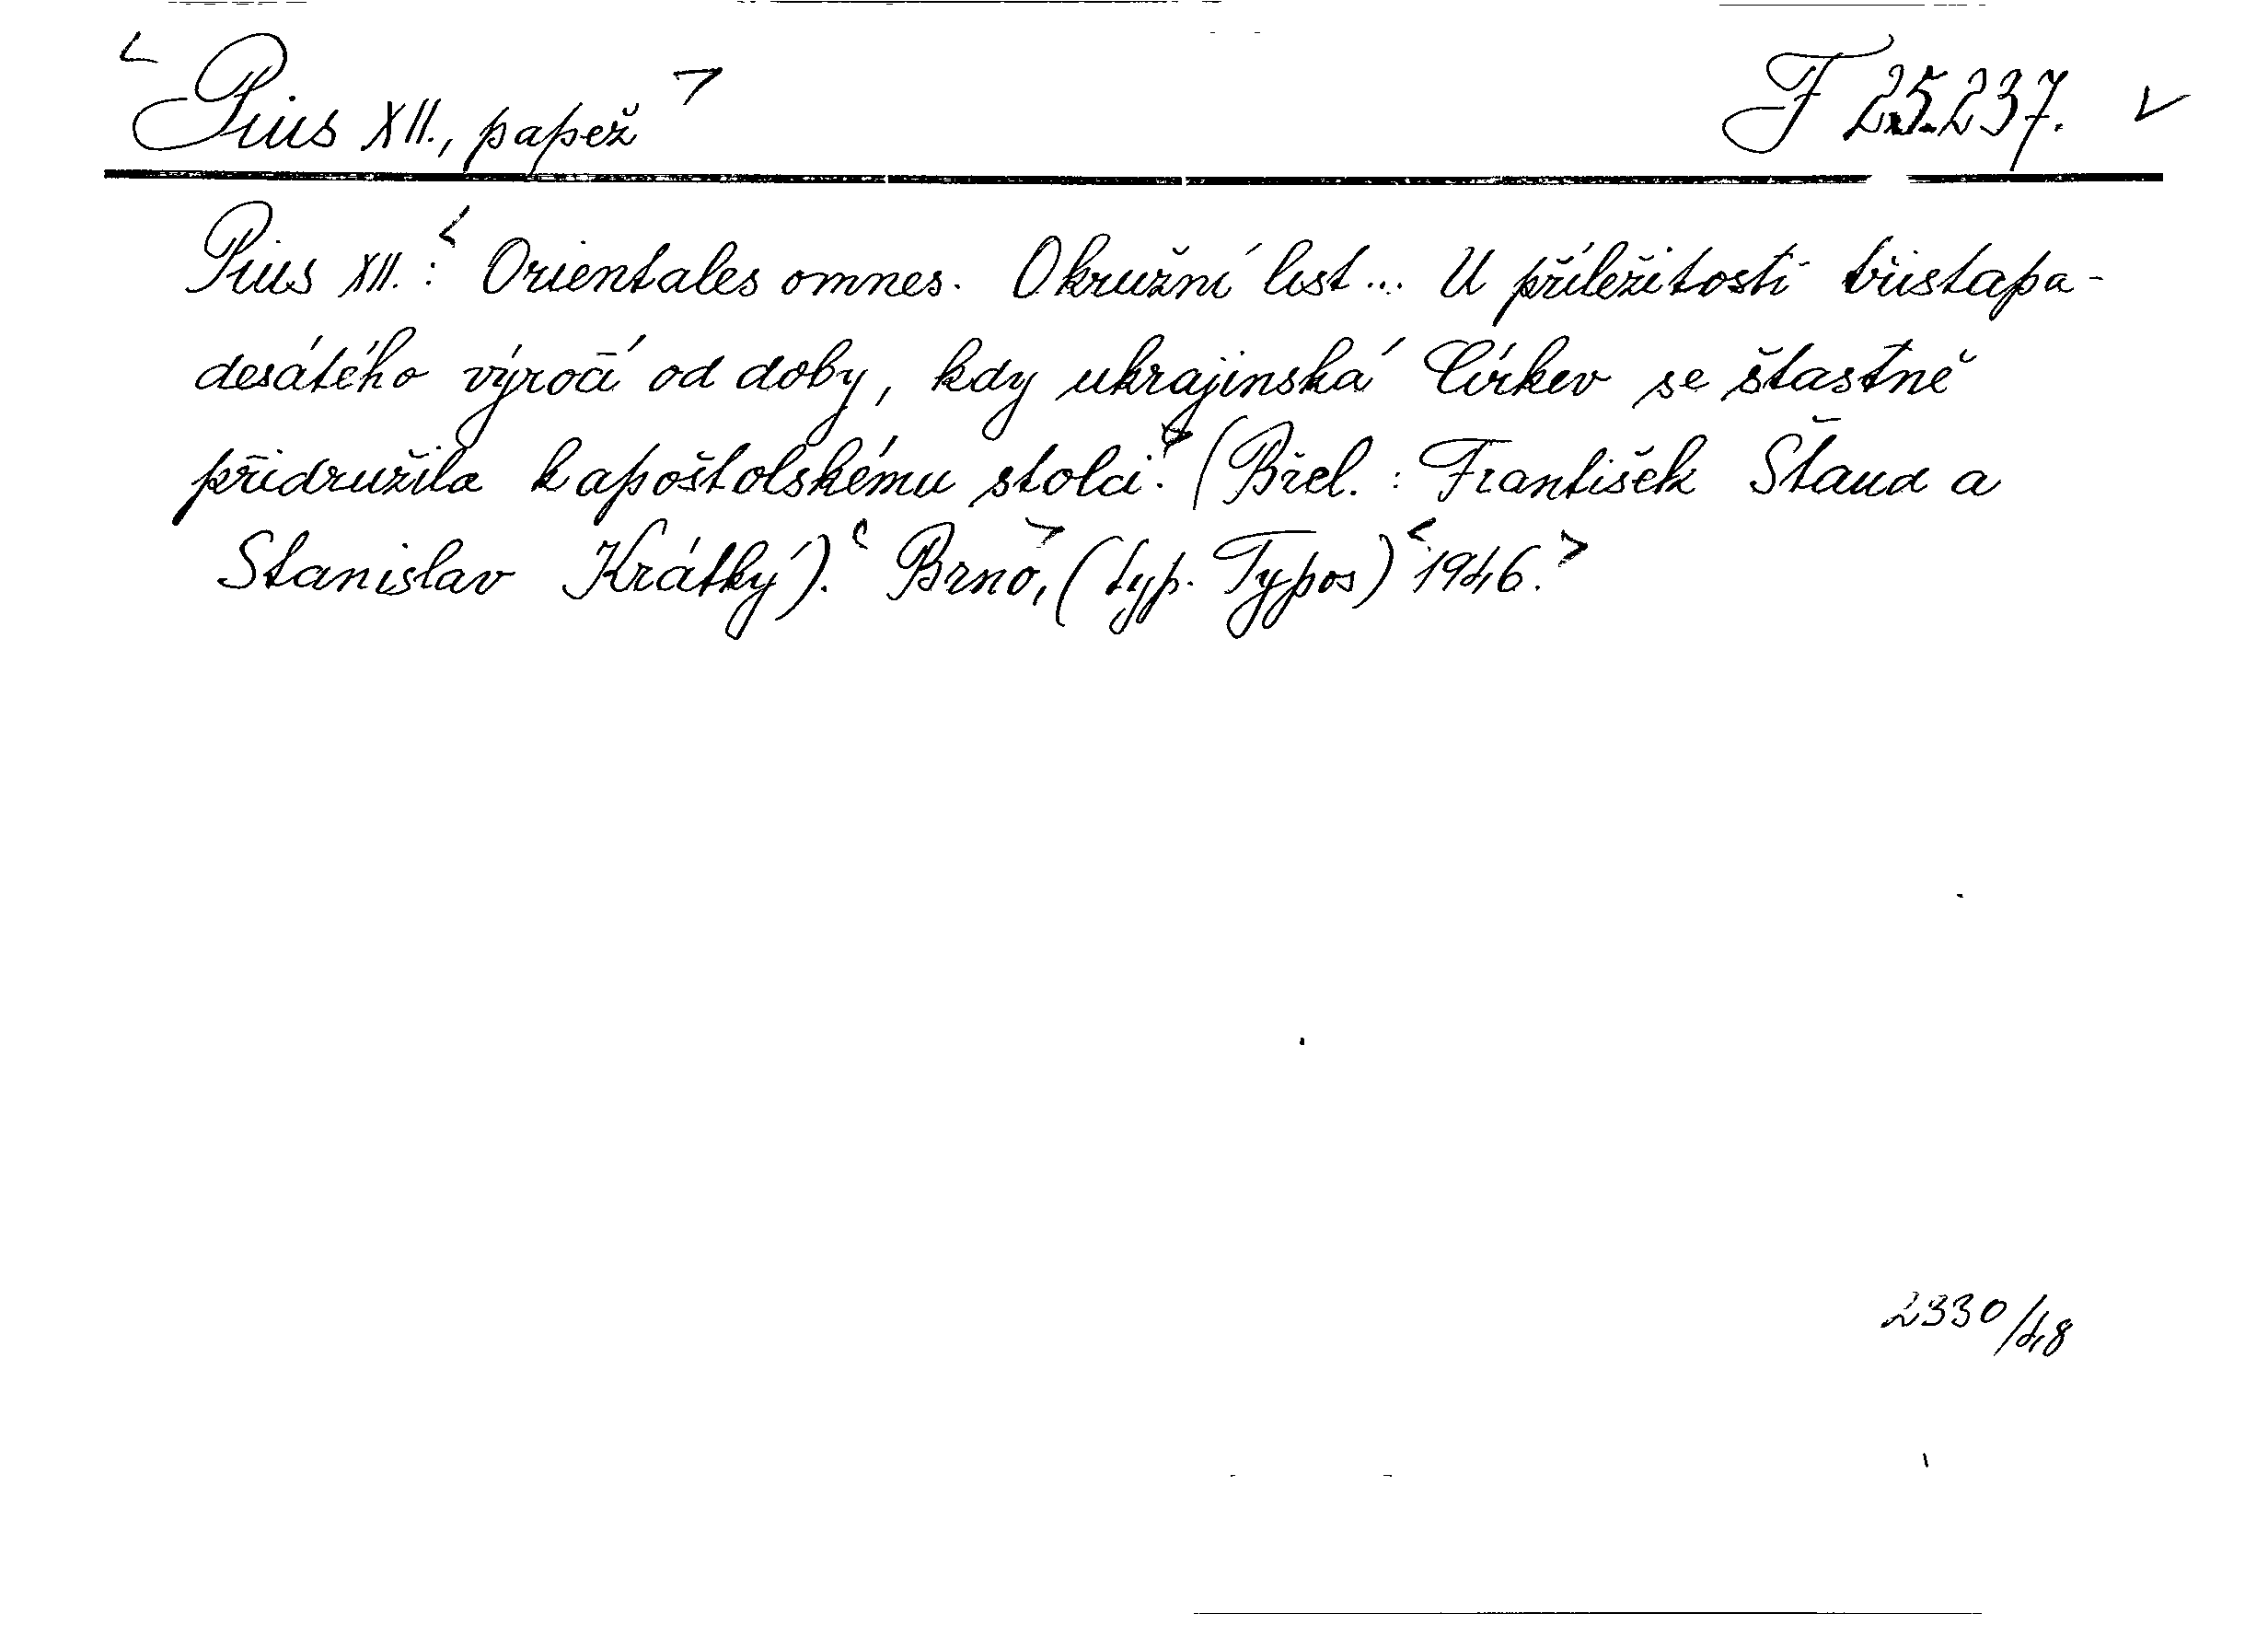 < Pius XII., papež > F 25.237. ✓
Pius XII.: < Orientales omnes. Okružní list... U příležitosti třistapa-
desátého výročí od doby, kdy ukrajinská Církev se šťastně
přidružila k apoštolskému stolci. > (Přel.: František Štaud a
Stanislav Krátký). < Brno, > (typ. Typos) < 1946. >
2330/48